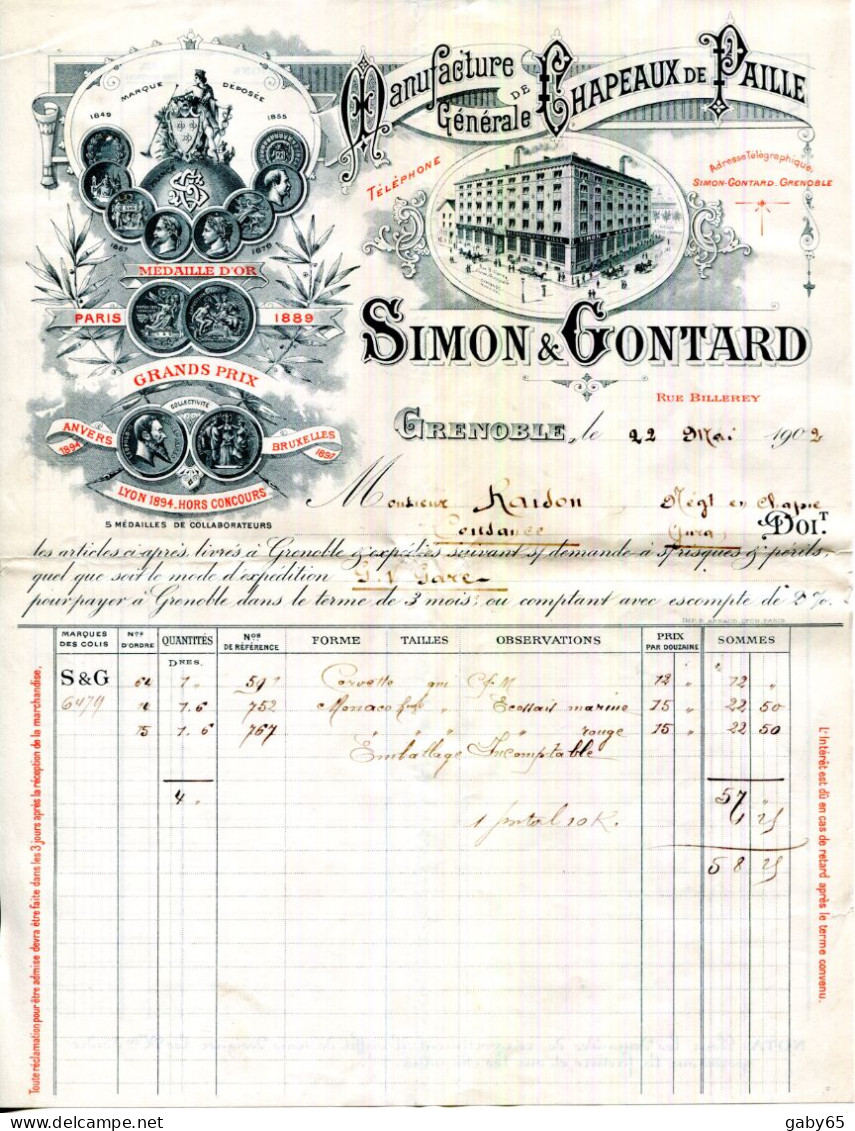 Manufacture Générale DE CHAPEAUX DE PAILLE
MARQUE DÉPOSÉE
1849 1855
1867 1878
MÉDAILLE D'OR
PARIS 1889
GRANDS PRIX
COLLECTIVITÉ
ANVERS 1894
BRUXELLES 1897
LYON 1894. HORS CONCOURS
5 MÉDAILLES DE COLLABORATEURS
TÉLÉPHONE
Adresse Télégraphique:
SIMON-GONTARD. GRENOBLE
SIMON & GONTARD
RUE BILLEREY
GRENOBLE, le 22 Mai 1902
Monsieur Raidon Négt en Chapie
Cousance Jura DOIT
les articles ci-après, livrés à Grenoble & expédiés suivant s/ demande à s/ risques & périls,
quel que soit le mode d'expédition G. V Gare
pour payer à Grenoble dans le terme de 3 mois ou comptant avec escompte de 2 %.
IMP. P. ARNAUD, LYON, PARIS
MARQUES DES COLIS Nos D'ORDRE QUANTITÉS Nos DE RÉFÉRENCE FORME TAILLES OBSERVATIONS PRIX PAR DOUZAINE SOMMES
DNES.
S&G 62 1 " 591 Corvette 12 " 12 "
6479 12 1. 6 752 Monaco " Ecossait marine 15 " 22 50
15 1. 6 767 " " " " rouge 15 " 22 50
Emballage Incomptable
4 " 57 "
1 postal 10 K. 1 25
58 25
Toute réclamation pour être admise devra être faite dans les 3 jours après la réception de la marchandise.
L'Intérêt est dû en cas de retard après le terme convenu.
gaby65